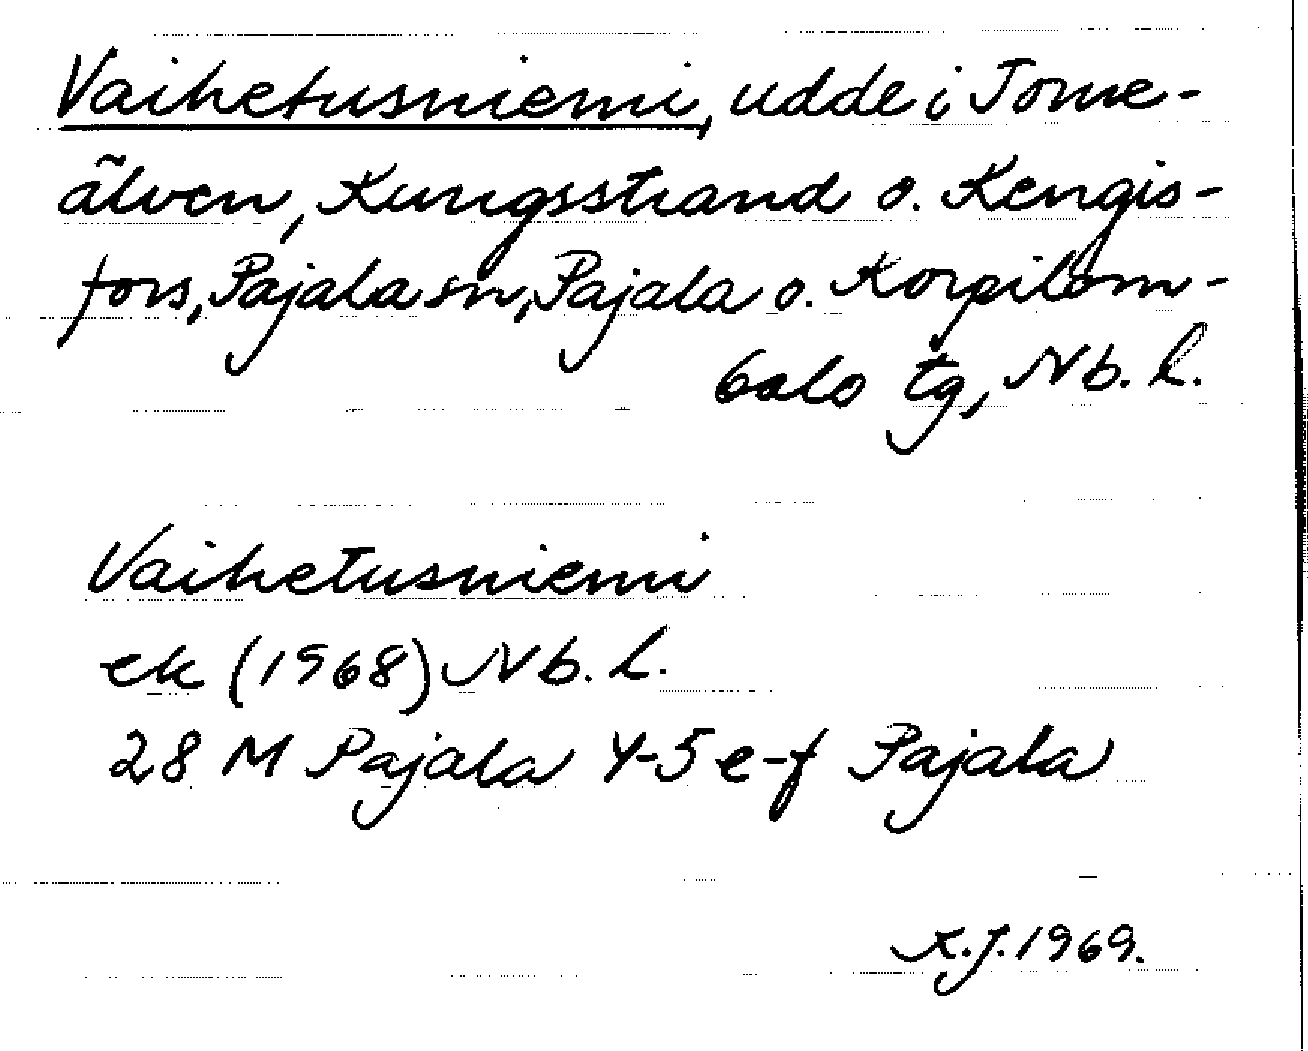 Vaihetusniemi, udde i Torne-
älven, Kungsstrand o. Kengis-
fors, Pajala sn, Pajala o. Korpilom-
bolo tg, Nb. l.
Vaihetusniemi
ek (1968) Nb. l.
28 M Pajala 4-5 e-f Pajala
K.J. 1969.